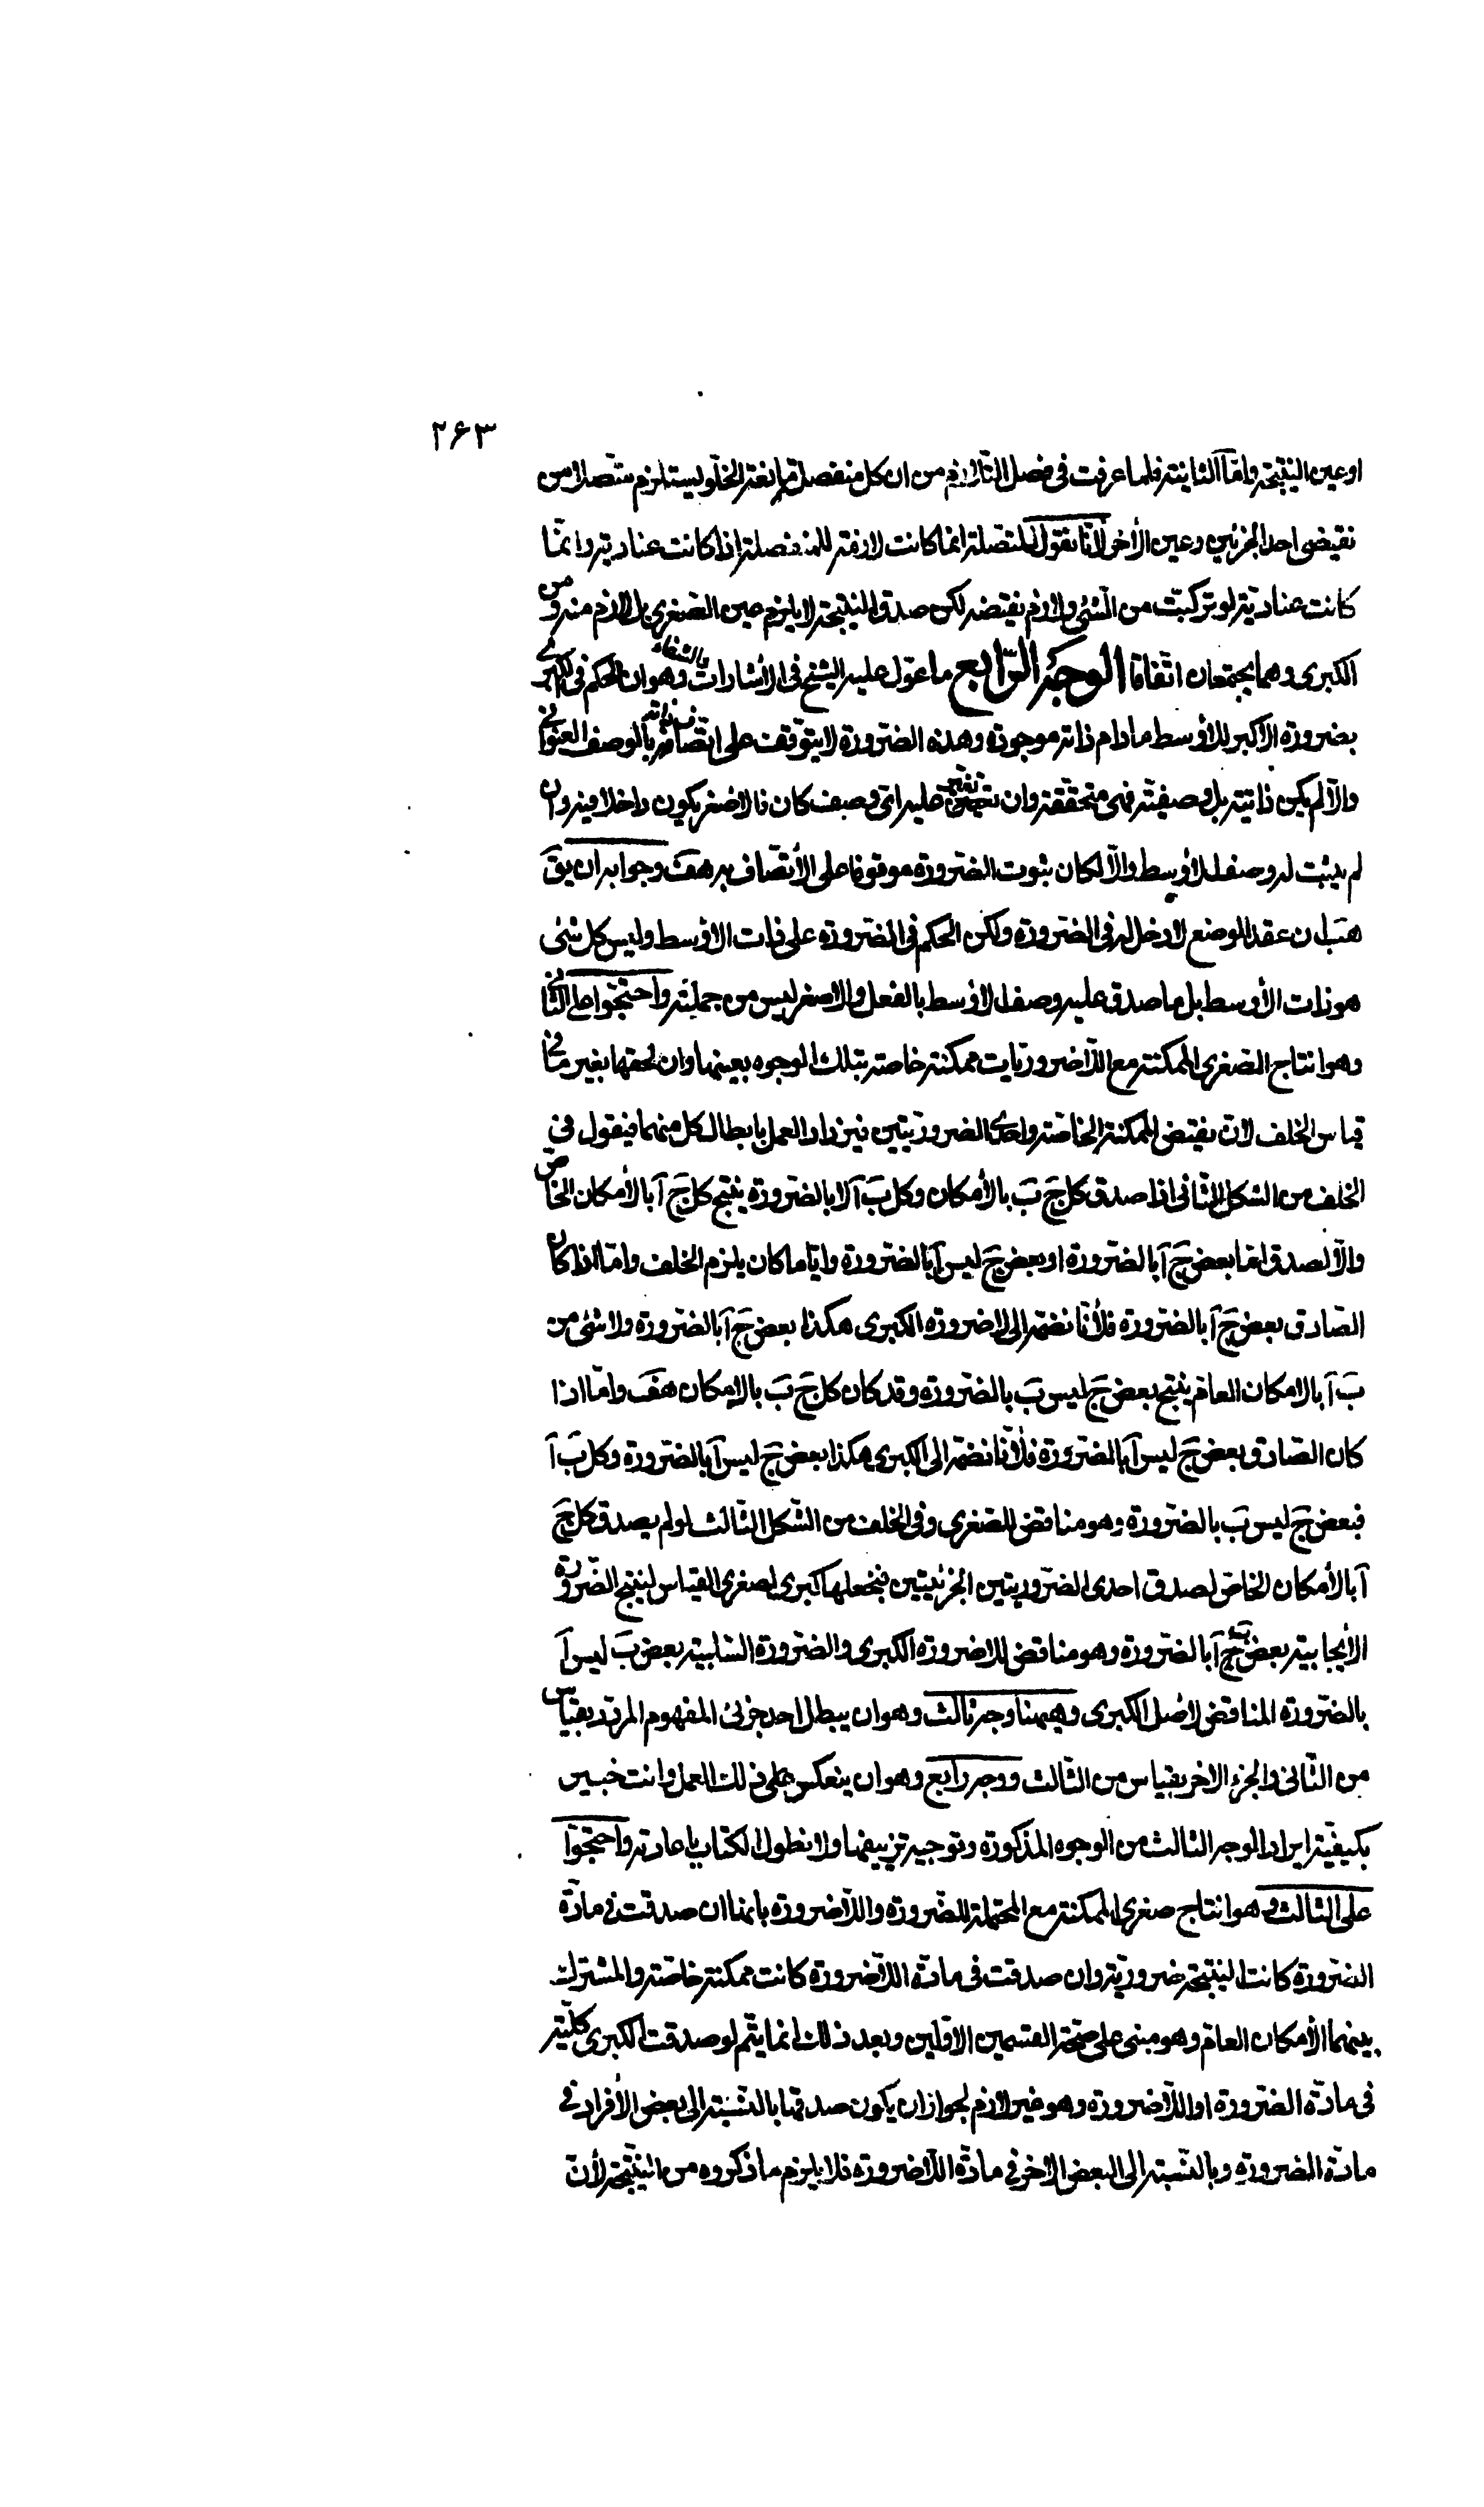 ٢۶٣
او عين النتيجة واما الثانية فلما عرفت فى فصل التلازم من ان كل منفصلة مانعة الخلو يستلزم متصلة من
نقيض احد الجزئين وعين الاخر لانا نقول المتصلة انما كانت لازمة للمنفصلة اذا كانت عنادية وانما
كانت عنادية لو تركبت من الشئ ولازم نقيضه لكن صدق النتيجة لا يلزم عين الصغرى بل اللازم منه ومن
الكبرى وهما يجتمعان اتفاقا الوجه الرابع ما عول عليه الشيخ فى الاشارات والشفاء وهو ان الحكم فى الكبرى
بضرورة الاكبر للاوسط مادام ذاته موجودة وهذه الضرورة لا يتوقف على اتصاف ذاته بالوصف العنوانى
والا لم يكن ذاتية بل وصفية فهى متحققة وان تغير عليه اى وصف كان فالاصغر يكون داخلا فيه وان
لم يثبت له وصف الاوسط والا لكان ثبوت الضرورة موقوفا على الاتصاف به هف وجوابه ان يق
هب ان عقد الوضع لا دخل له فى الضرورة ولكن الحكم فى الضرورة على ذات الاوسط وليس كل شئ
هو ذات الاوسط بل ما صدق عليه وصف الاوسط بالفعل والاصغر ليس من جملته واحتجوا على الثانى
وهو انتاج الصغرى الممكنة مع اللاضروريات ممكنة خاصة بتلك الوجوه بعينها وان لحقها تغير ما فى
قياس الخلف لان نقيض الممكنة الخاصة احدى الضروريتين فيزداد العمل بابطال كل منهما فيقول فى
الخلف من الشكل الثانى اذا صدق كل ج ب بالامكان وكل ب آ لا بالضرورة ينتج كل ج آ بالامكان الخاص
والا لصدق اما بعض ج آ بالضرورة او بعض ج ليس آ بالضرورة واياما كان يلزم الخلف واما اذا كان
الصادق بعض ج آ بالضرورة فلانا نضمه الى لاضرورة الكبرى هكذا بعض ج آ بالضرورة ولا شئ من
ب آ بالامكان العام ينتج بعض ج ليس ب بالضرورة وقد كان كل ج ب بالامكان هف واما اذا
كان الصادق بعض ج ليس آ بالضرورة فلانا نضمه الى الكبرى هكذا بعض ج ليس آ بالضرورة وكل ب آ
فبعض ج ليس ب بالضرورة وهو مناقض للصغرى وفى الخلف من الشكل الثالث لو لم يصدق كل ج
آ بالامكان الخاص لصدق احدى الضروريتين الجزئيتين فنجعلها كبرى لصغرى القياس لينتج الضرورة
الايجابية بعض ب آ بالضرورة وهو مناقض للاضرورة الكبرى والضرورة السلبية بعض ب ليس آ
بالضرورة المناقض لاصل الكبرى وههنا وجه ثالث وهو ان يبطل احد جزئى المفهوم المردد بقياس
من الثانى والجزء الاخر بقياس من الثالث ووجه رابع وهو ان ينعكس على ذلك العمل وانت خبير
بكيفية ايراد الوجه الثالث من الوجوه المذكورة وتوجيه تزييفها ولا نطول الكتاب باعادته واحتجوا
على الثالث وهو انتاج صغرى الممكنة مع المحتملة للضرورة واللاضرورة بانها ان صدقت فى مادة
الضرورة كانت النتيجة ضرورية وان صدقت فى مادة اللاضرورة كانت ممكنة خاصة والمشترك
بينهما الامكان العام وهو مبنى على صحة القسمين الاولين وبعد ذلك انما يتم لو صدقت الكبرى كلية
فى مادة الضرورة او اللاضرورة وهو غير لازم لجواز ان يكون صدقها بالنسبة الى بعض الافراد فى
مادة الضرورة وبالنسبة الى البعض الاخر فى مادة اللاضرورة فلا يلزم ما ذكروه من النتيجة لان